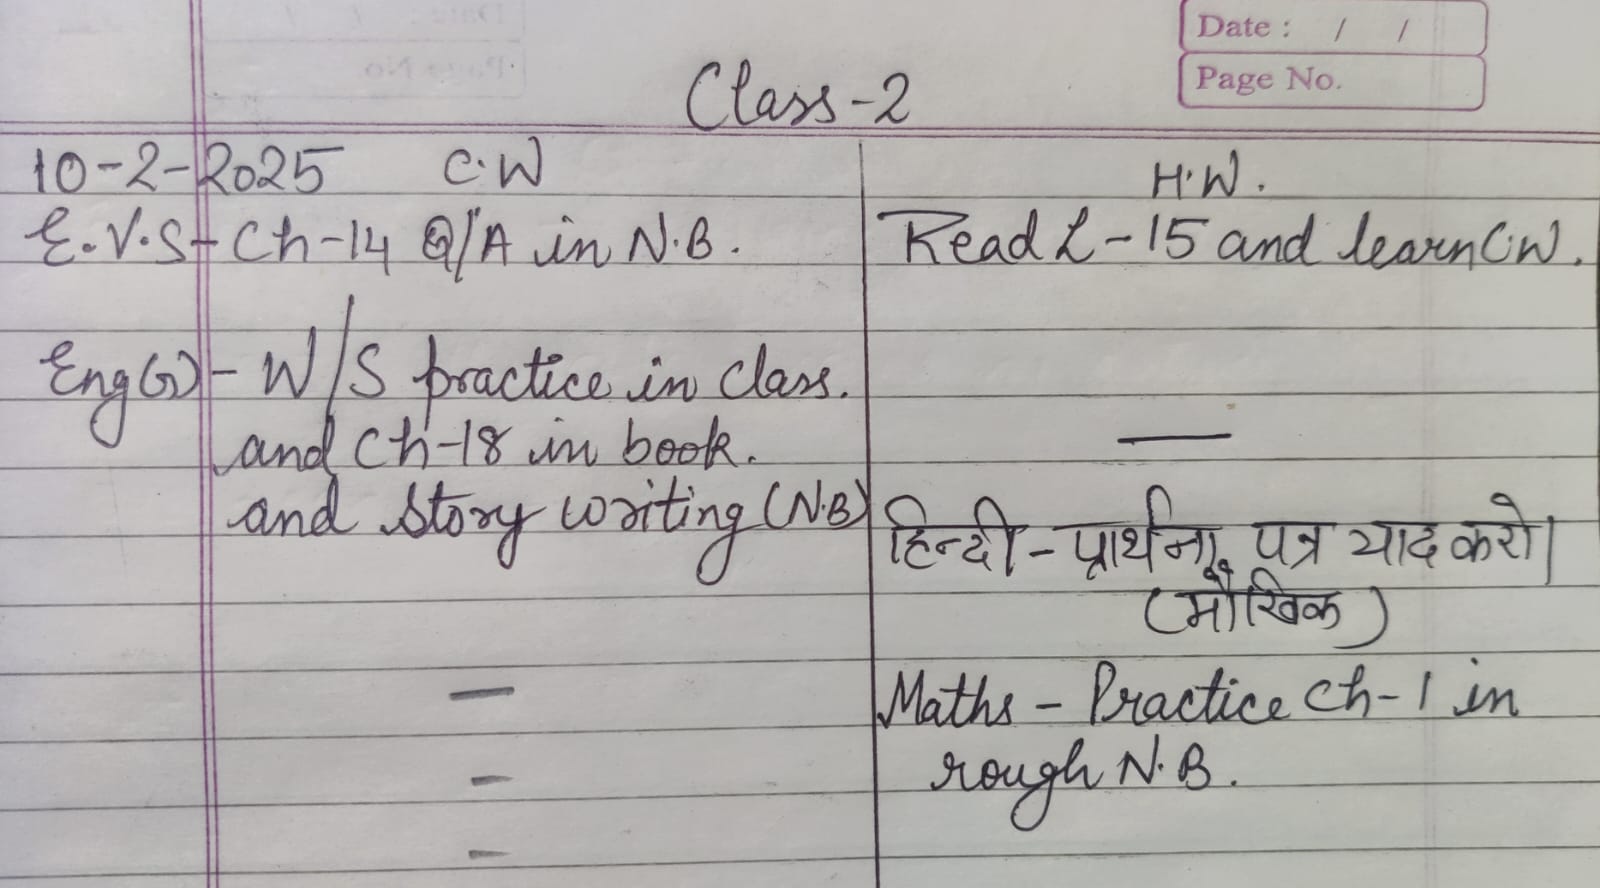 Date : / /
Page No.
Class-2
10-2-2025 C.W
H.W.
E.V.S - Ch-14 Q/A in N.B.
Read L-15 and learn C.W.
Eng(G) - W/S practice in class.
and Ch-18 in book.
and story writing (N.B)
हिन्दी - प्रार्थना पत्र याद करो।
(मौखिक)
Maths - Practice Ch-1 in
rough N.B.